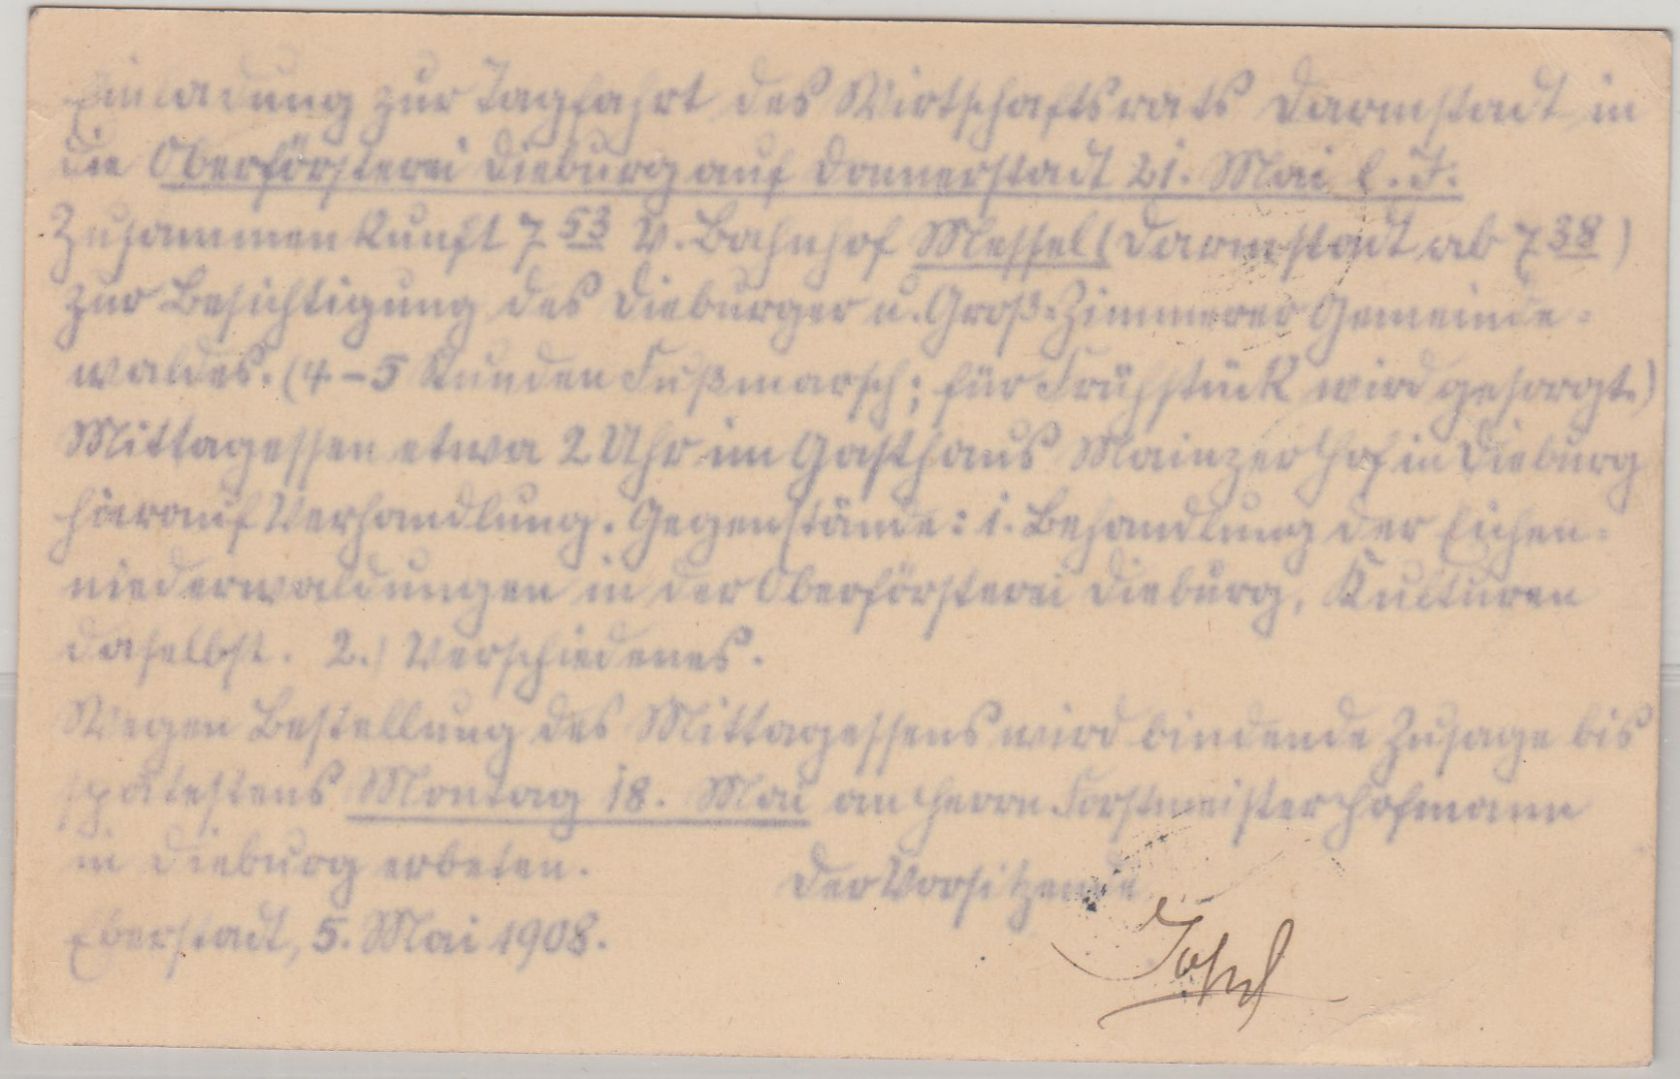 Einladung zur Tagfahrt des Wirtschaftsrats Darmstadt in
die Oberförsterei Dieburg auf Donnerstadt 21. Mai l. J.
Zusammenkunft 7 53 V. Bahnhof Messel (Darmstadt ab 7 38)
zur Besichtigung des Dieburger u. Groß-Zimmerer Gemeinde-
waldes. (4-5 Stunden Fußmarsch; für Frühstück wird gesorgt.)
Mittagessen etwa 2 Uhr im Gasthaus Mainzer Hof in Dieburg
hierauf Verhandlung. Gegenstände: 1. Behandlung der Eichen-
niederwaldungen in der Oberförsterei Dieburg, Kulturen
daselbst. 2.) Verschiedenes.
Wegen Bestellung des Mittagessens wird bindende Zusage bis
spätestens Montag 18. Mai an Herrn Forstmeister Hofmann
in Dieburg erbeten.
Der Vorsitzende
Eberstadt, 5. Mai 1908.